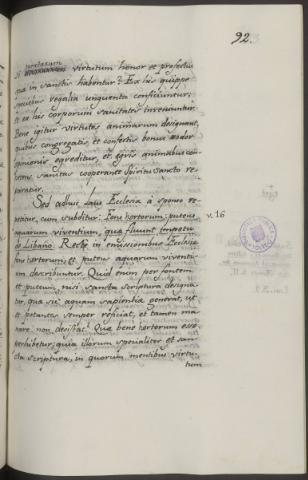 92
prelatorum
si virtutum honor et profectus
qui in sanctis habentur? Ex his quippe
speciebus regalia unguenta conficiuntur;
et ex his corporum sanitates inveniuntur.
Bene igitur virtutes animarum designant,
quibus congregatis, et confectis bonus odor
opinionis egreditur, et egris animabus
sanitas cooperante Spiritu sancto re-
paratur.
Sed adhuc laus Ecclesiæ à sponso re-
petatur, cum subditur: Fons hortorum; puteus
aquarum viventium, quæ fluunt impetu
de Libano. Rectè in emissionibus Ecclesiæ
fons hortorum, et puteus aquarum viventi-
um describuntur. Quid enim per fontem
et puteum, nisi sancta scriptura designa-
tur, quæ sic aquam sapientiæ generat, ut
et potantes semper reficiat, et tamen ma-
nare non desistat? Quæ bene hortorum esse
perhibetur, quia illorum specialiter est sanc-
ta scriptura, in quorum mentibus virtu-
tum
v. 16